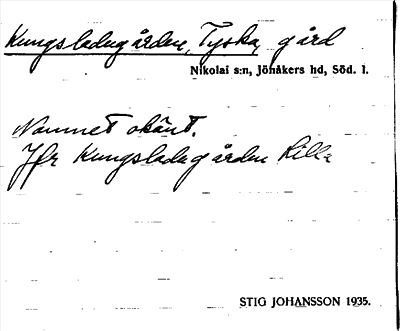 Kungsladugården, Tyska, gård
Nikolai s:n, Jönåkers hd, Söd. l.
Namnet okänt.
Jfr Kungsladugården Lilla
STIG JOHANSSON 1935.